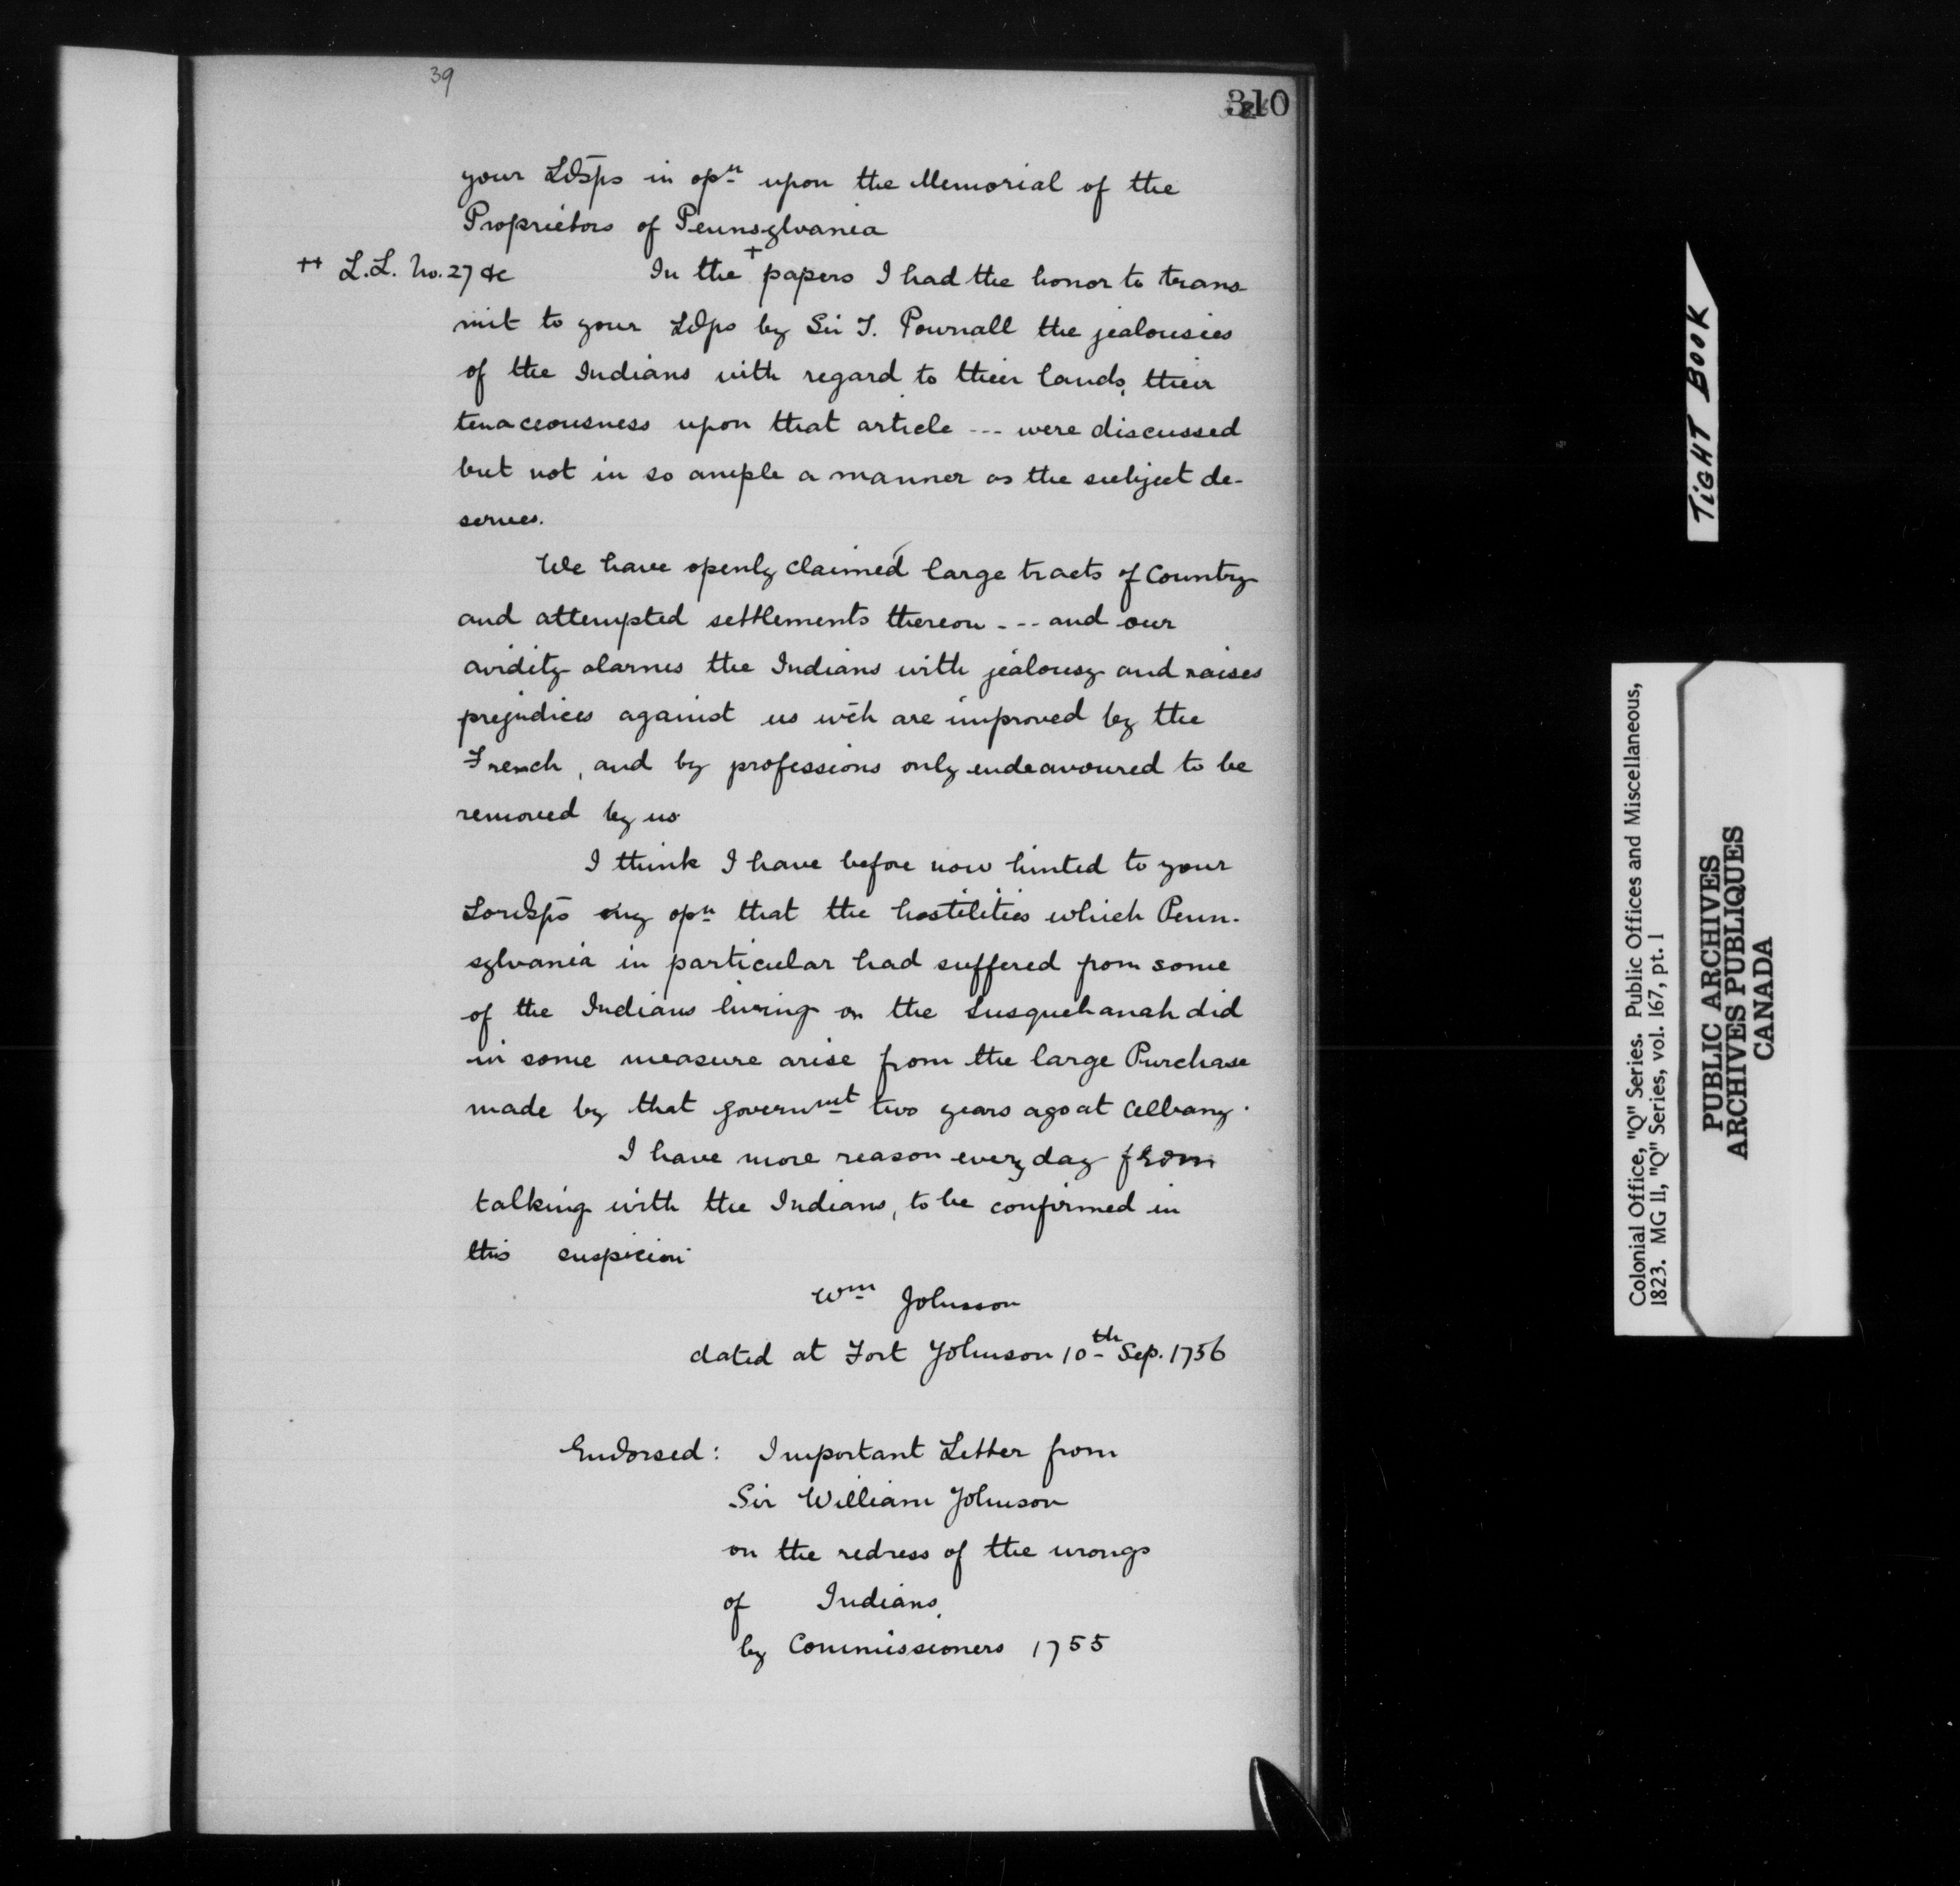 39
310
your Ldsps in opn upon the Memorial of the
Proprietors of Pennsylvania
++ L.L. No. 27 &c
In the + papers I had the honor to trans-
mit to your Ldps by Sir T. Pownall the jealousies
of the Indians with regard to their lands, their
tenaceousness upon that article --- were discussed
but not in so ample a manner as the subject de-
serves.
We have openly claimed large tracts of Country
and attempted settlements thereon --- and our
avidity alarms the Indians with jealousy and raises
prejudices against us wch are improved by the
French, and by professions only endeavoured to be
removed by us
I think I have before now hinted to your
Lordsps my opn that the hostilities which Penn-
sylvania in particular had suffered from some
of the Indians living on the Susquehanah did
in some measure arise from the large Purchase
made by that governmt two years ago at Albany.
I have more reason every day from
talking with the Indians, to be confirmed in
this suspicion
Wm Johnson
dated at Fort Johnson 10th Sep. 1756
Endorsed: Important Letter from
Sir William Johnson
on the redress of the wrongs
of Indians,
by Commissioners 1755
TIGHT BOOK
Colonial Office, "Q" Series. Public Offices and Miscellaneous,
1823. MG 11, "Q" Series, vol. 167, pt. 1
PUBLIC ARCHIVES
ARCHIVES PUBLIQUES
CANADA